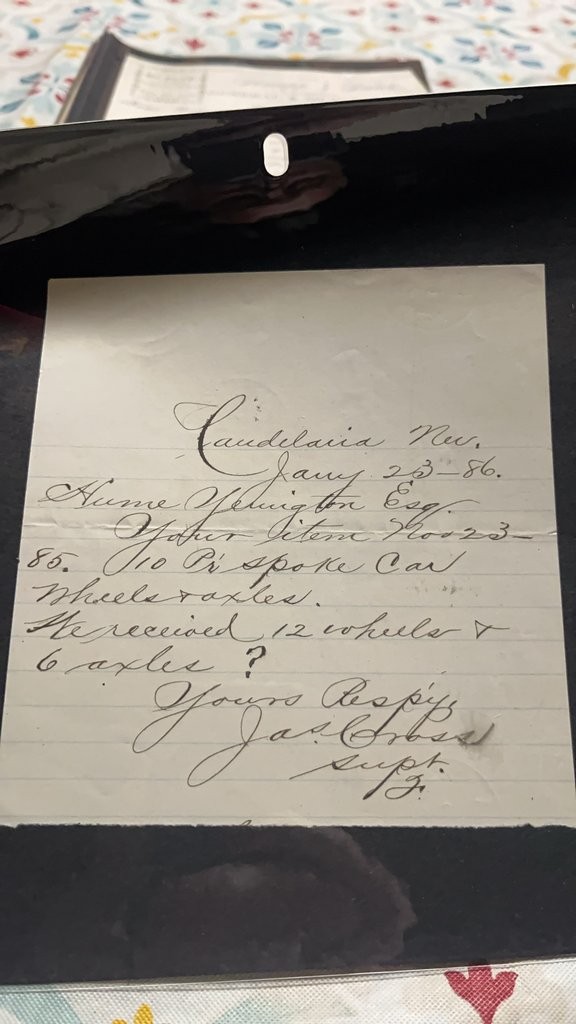 Candelaria Nev.
Jany 23-86.
Hume Yerington Esq.
Your item Nov 23-
85. 10 Pr spoke Car
Wheels & axles.
We received 12 wheels &
6 axles ?
Yours Respy,
Jas. Cross
Supt.